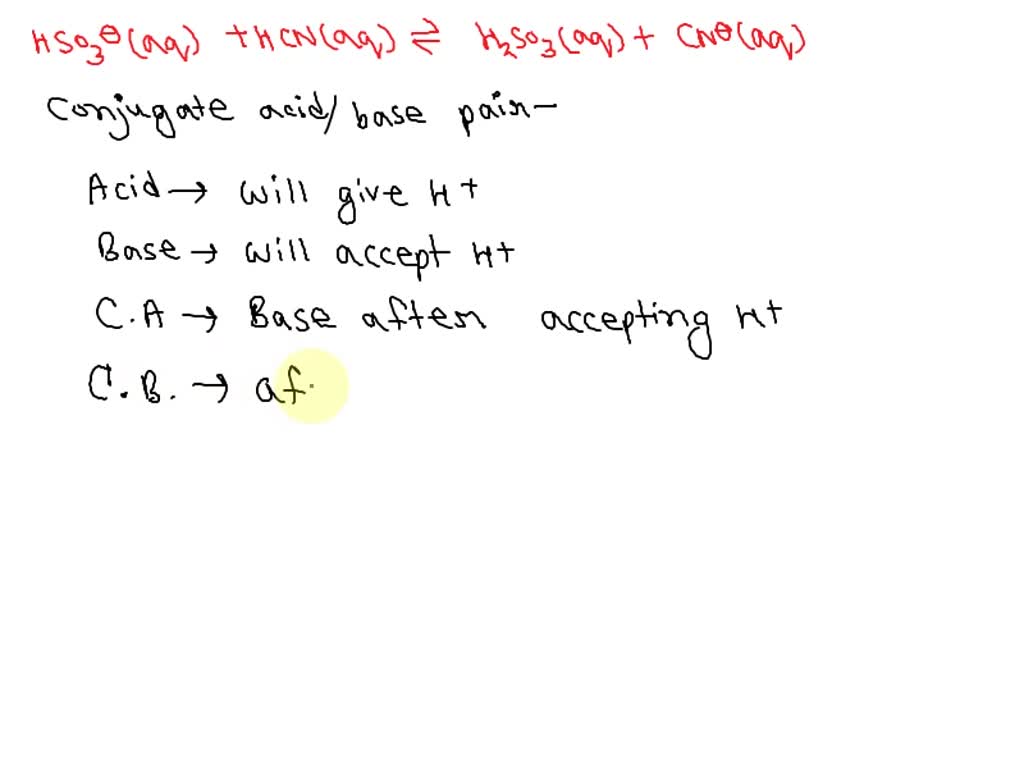 HSO₃⊖(aq) + HCN(aq) ⇌ H₂SO₃(aq) + CN⊖(aq)
Conjugate acid/base pair–
Acid → will give H+
Base → will accept H+
C.A → Base after accepting H+
C.B. → af